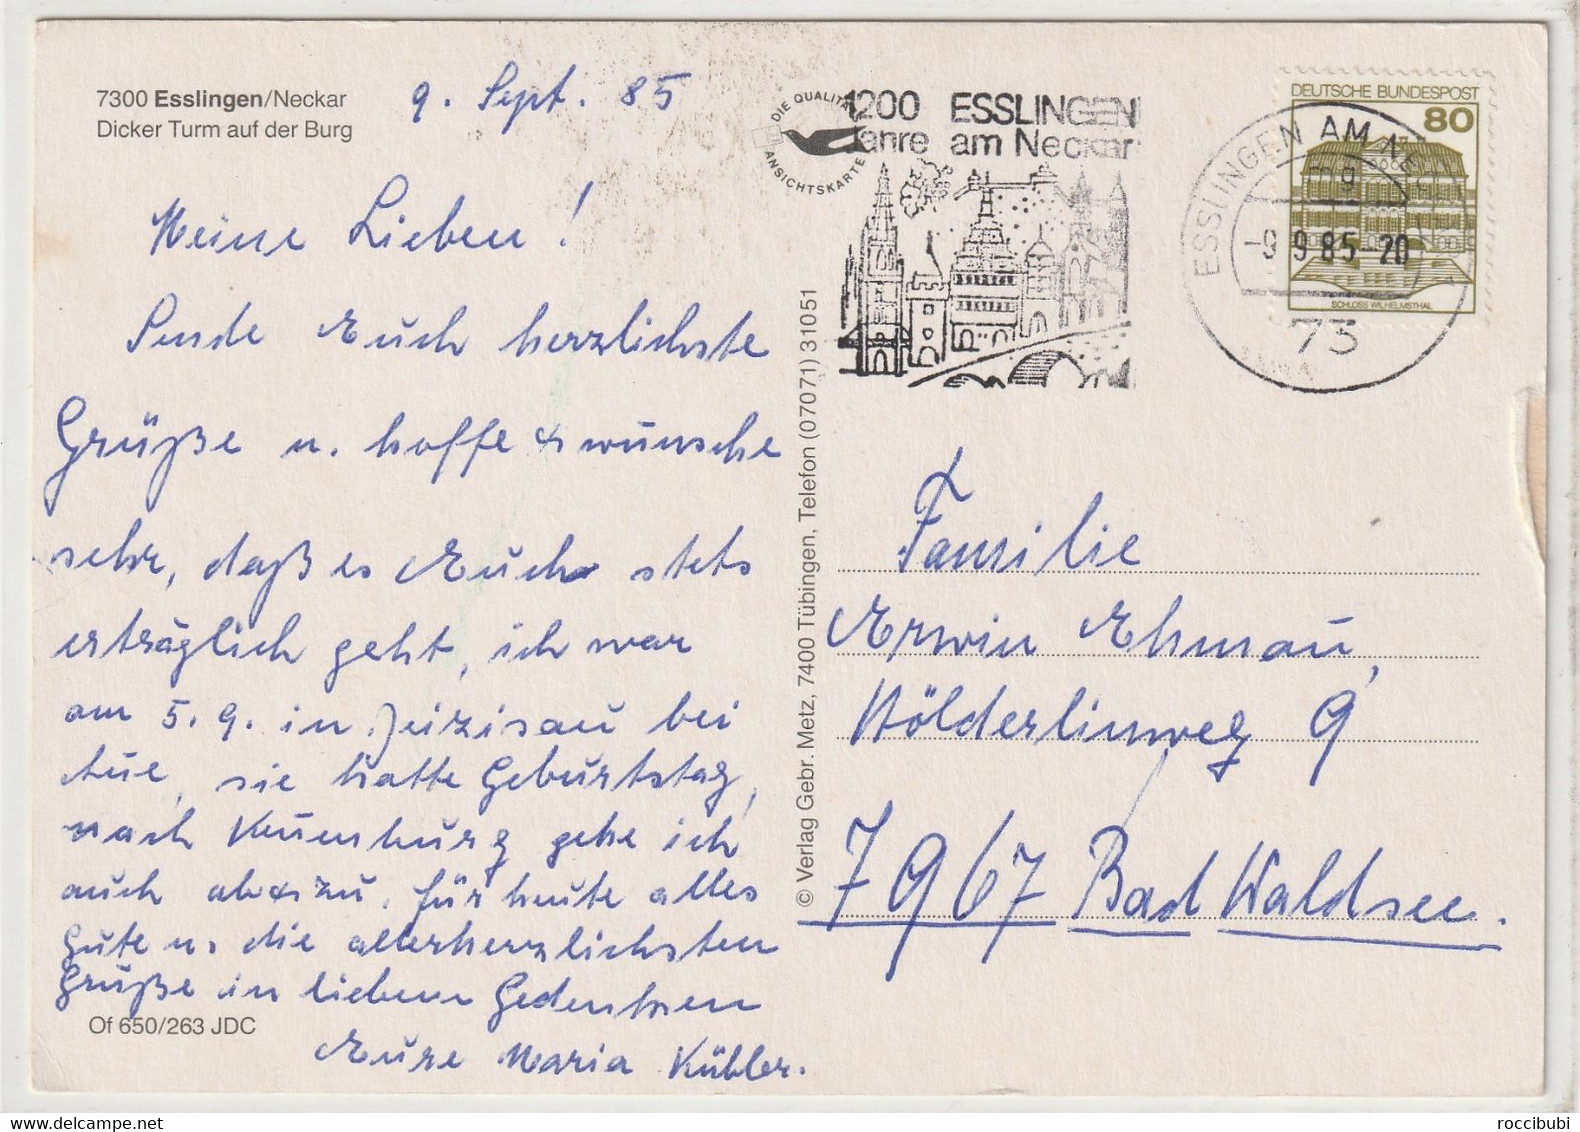 7300 Esslingen/Neckar
Dicker Turm auf der Burg
9. Sept. 85
Meine Lieben!
Sende Euch herzlichste
Grüße u. hoffe & wünsche
sehr, daß es Euch stets
erträglich geht, ich war
am 5. 9. in Zeizisau bei
sie hatte Geburtstag,
nach Neuenburg gehe ich
auch ab & zu. für heute alles
Gute u. die allerherzlichsten
Grüße in liebem Gedenken
Eure Maria Kübler.
Of 650/263 JDC
© Verlag Gebr. Metz, 7400 Tübingen, Telefon (07071) 31051
DIE QUALITÄTS
ANSICHTSKARTE
1200 ESSLINGEN
Jahre am Neckar
DEUTSCHE BUNDESPOST
80
SCHLOSS WILHELMSTHAL
ESSLINGEN AM NECKAR
mg
-9.9.85-20
73
Familie
Erwin Ehmau,
Hölderlinweg 9
7967 Bad Waldsee.
roccibubi